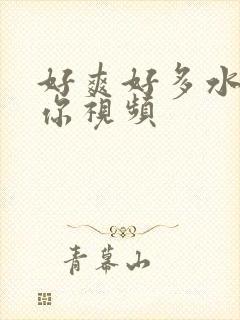 好爽好多水
你視頻
青幕山